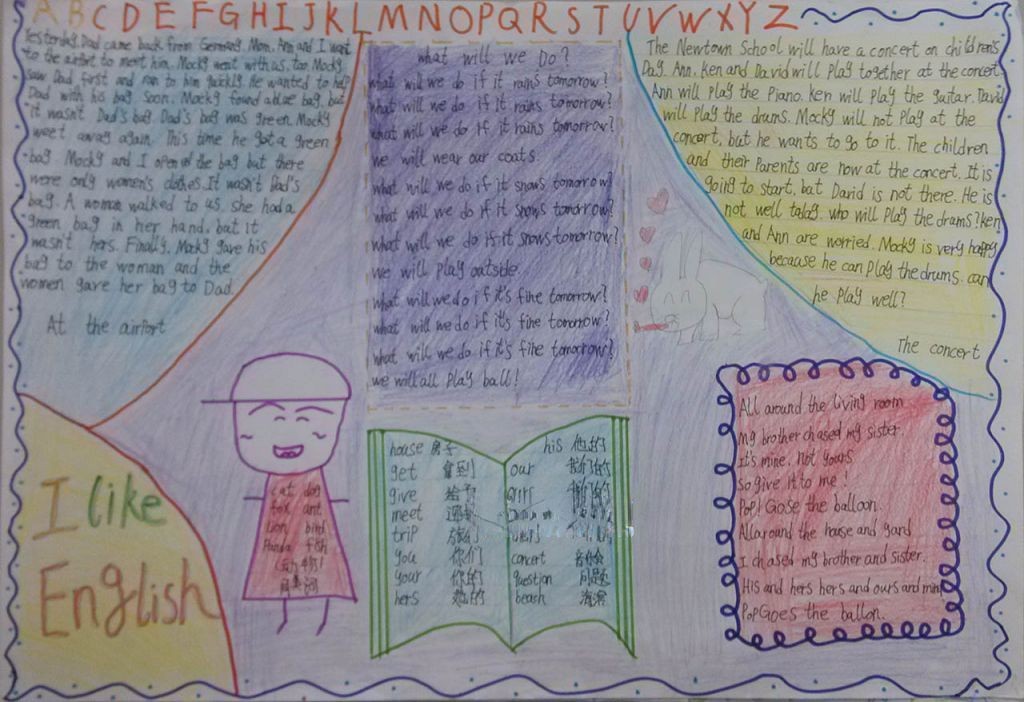 ABCDEFGHIJKLMNOPQRSTUVWXYZ
Yesterday, Dad came back from Germany. Mom, Ann and I went
to the airport to meet him. Mocky went with us, too. Mocky
saw Dad first and ran to him quickly. He wanted to help
Dad with his bag. Soon, Mocky found a blue bag, but
it wasn't Dad's bag. Dad's bag was green. Mocky
went away again. This time he got a green
bag. Mocky and I opened the bag but there
were only women's clothes. It wasn't Dad's
bag. A woman walked to us. She had a
green bag in her hand, but it
wasn't hers. Finally, Mocky gave his
bag to the woman and the
women gave her bag to Dad.
At the airport
what will we Do?
what will we do if it rains tomorrow?
what will we do if it rains tomorrow?
what will we do if it rains tomorrow?
we will wear our coats.
what will we do if it snows tomorrow?
what will we do if it snows tomorrow?
what will we do if it snows tomorrow?
we will play outside.
what will we do if it's fine tomorrow?
what will we do if it's fine tomorrow?
what will we do if it's fine tomorrow?
we will all play ball!
The Newtown School will have a concert on children's
Day. Ann, Ken and David will play together at the concert.
Ann will play the Piano. ken will play the guitar. David
will play the drums. Mocky will not play at the
concert, but he wants to go to it. The children
and their parents are now at the concert. It is
going to start, but David is not there. He is
not well today. who will play the drams? ken
and Ann are worried. Mocky is very happy
because he can play the drums. can
he play well?
The concert
I like
English
cat dog
fox ant
Lion bird
Panda fish
house 房子
get 拿到
give 给予
meet
trip 旅行
you 你们
your 你的
hers 她的
his 他的
our 我们的
concert 音乐会
question 问题
beach 海滩
All around the living room
my brother chased my sister.
It's mine, not yours
so give it to me!
Pop! Goose the balloon.
All around the house and yard
I chased my brother and sister.
His and hers hers and ours and mine
Pop Goes the ballon.